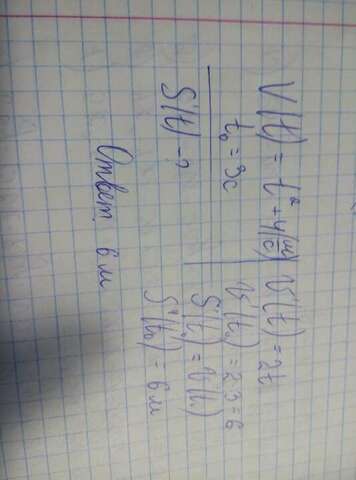 V(t) = t² + 4 (м/с)
t₀ = 3с
S'(t) - ?
V'(t) = 2t
V'(t₀) = 2·3 = 6
S'(t) = V(t)
S'(t₀) = 6 м
Ответ 6 м